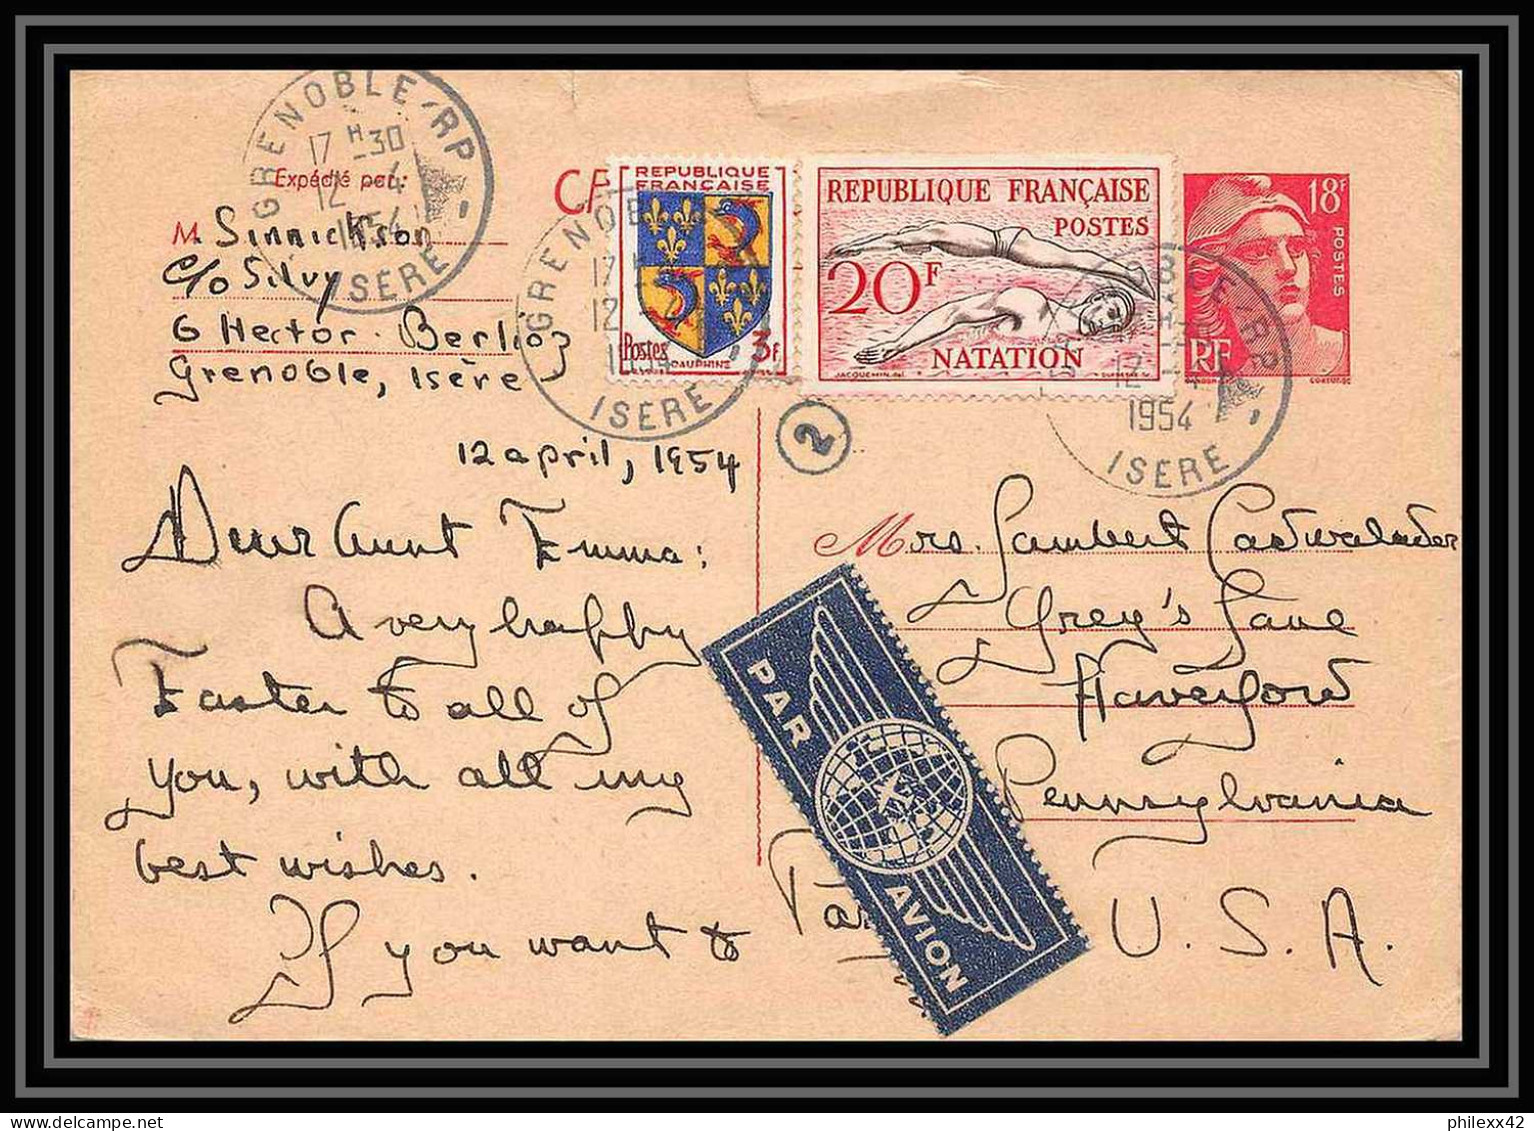 GRENOBLE-RP
17 H-30
12 -4
1954
ISÈRE
Expédié par:
M. Sinnickson
c/o Silvy
6 Hector Berlioz
Grenoble, Isère
CP
REPUBLIQUE
FRANÇAISE
Postes 3F
DAUPHINE
GRENOBLE
17
12
1954
ISÈRE
REPUBLIQUE FRANÇAISE
POSTES
20F
NATATION
JACQUEMIN
18F
POSTES
RF
RP
12
1954
ISÈRE
2
12 april, 1954
Dear Aunt Emma:
A very happy
Easter to all of
you, with all my
best wishes.
If you want to
Mrs. Lambert Cadwalader
Grey's Lane
Haverford
Pennsylvania
U.S.A.
PAR AVION
philexx42